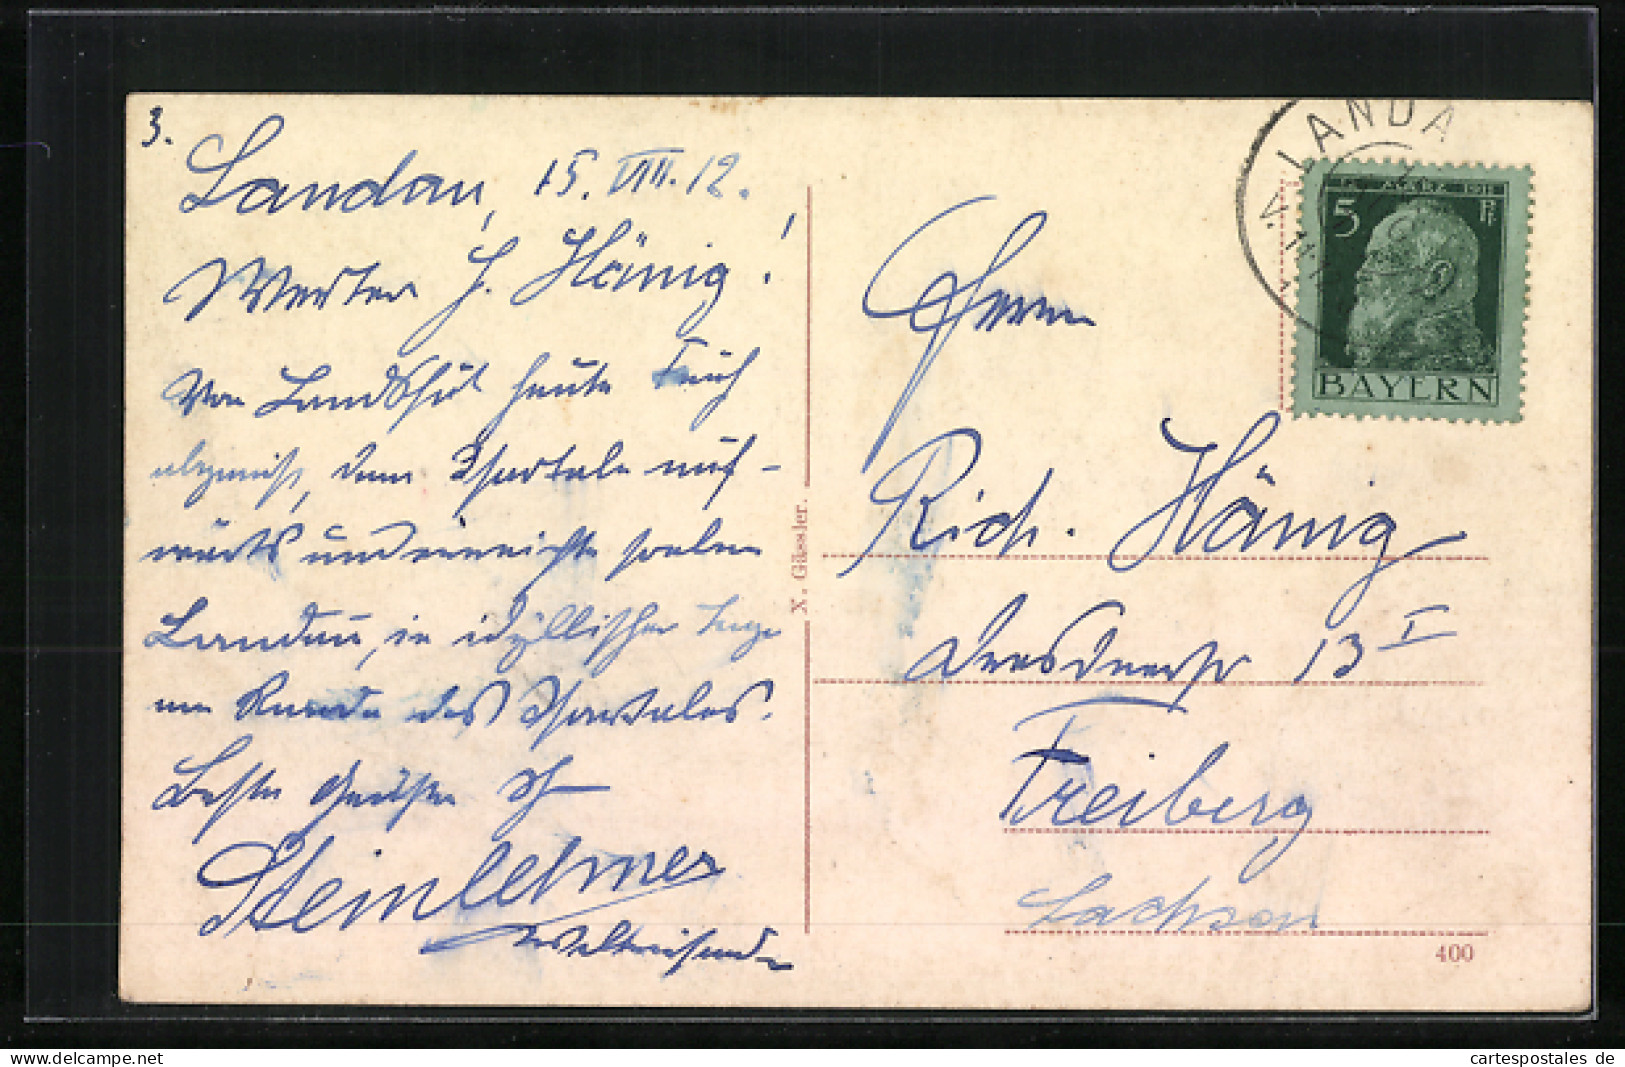 3.
Landau, 15. VIII. 12.
Werter H. Hänig!
Von Landshut heute Früh
abgereist, dem Isartale auf-
wärts und erreichte soeben
Landau, in idyllischer Lage
am Rande des Isartales.
Beste Grüße
Steinlehner
Weltreisender
X. Gässler.
LANDA
12. MÄRZ 1911
5 Pf
BAYERN
Herrn
Rich. Hänig
Dresdnerstr 13 I
Freiberg
Sachsen
400
cartespostales de